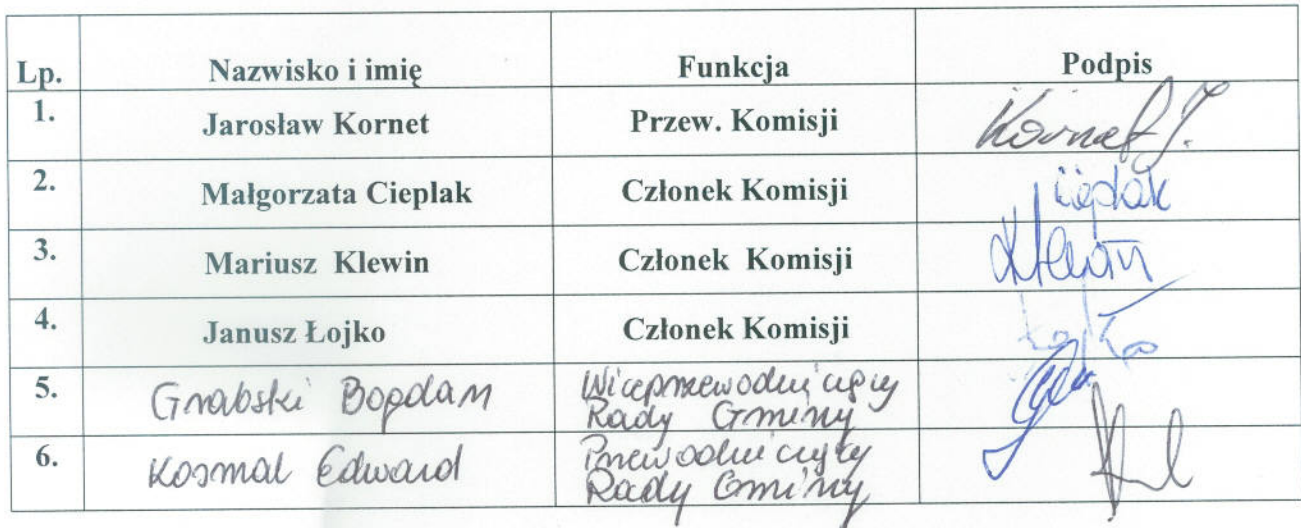 Lp. Nazwisko i imię Funkcja Podpis
1. Jarosław Kornet Przew. Komisji Kornet J.
2. Małgorzata Cieplak Członek Komisji Cieplak
3. Mariusz Klewin Członek Komisji
4. Janusz Łojko Członek Komisji Łojko
5. Grabski Bogdan Wiceprzewodniczący
Rady Gminy
6. Kosmal Edward Przewodniczący
Rady Gminy